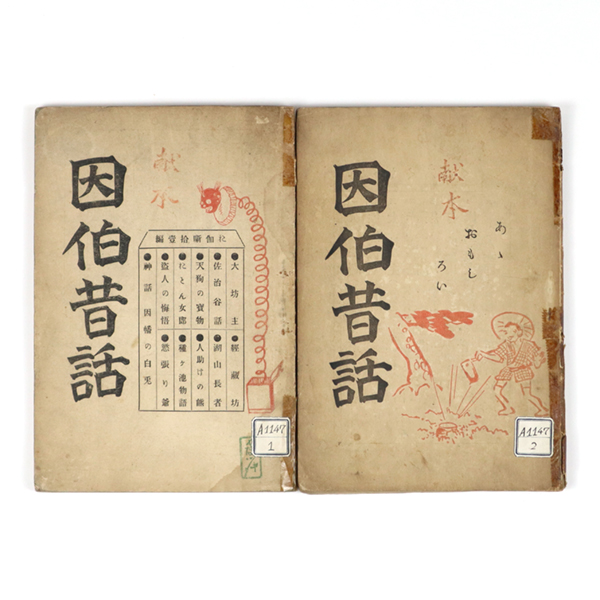 因伯昔話
献本
に伽噺拾壹編
●大坊主
●経蔵坊
●佐治谷話
●湖山長者
●天狗の寶物
●人助けの鶴
●にとん女郎
●種ヶ池物語
●盗人の悔悟
●恐張り爺
●神話因幡の白兎
A1147
1
因伯昔話
献本
あゝ
おもし
ろい
A1147
2